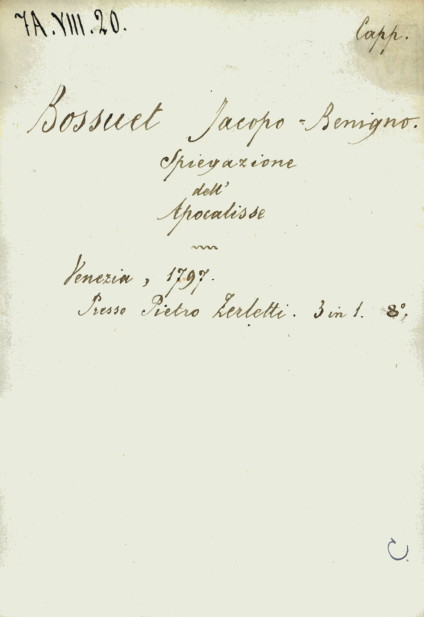 7A.VIII.20.
Capp.
Bossuet Jacopo=Benigno.
Spiegazione
dell'
Apocalisse
Venezia, 1797.
Presso Pietro Zerletti. 3 in 1. 8°,
C.